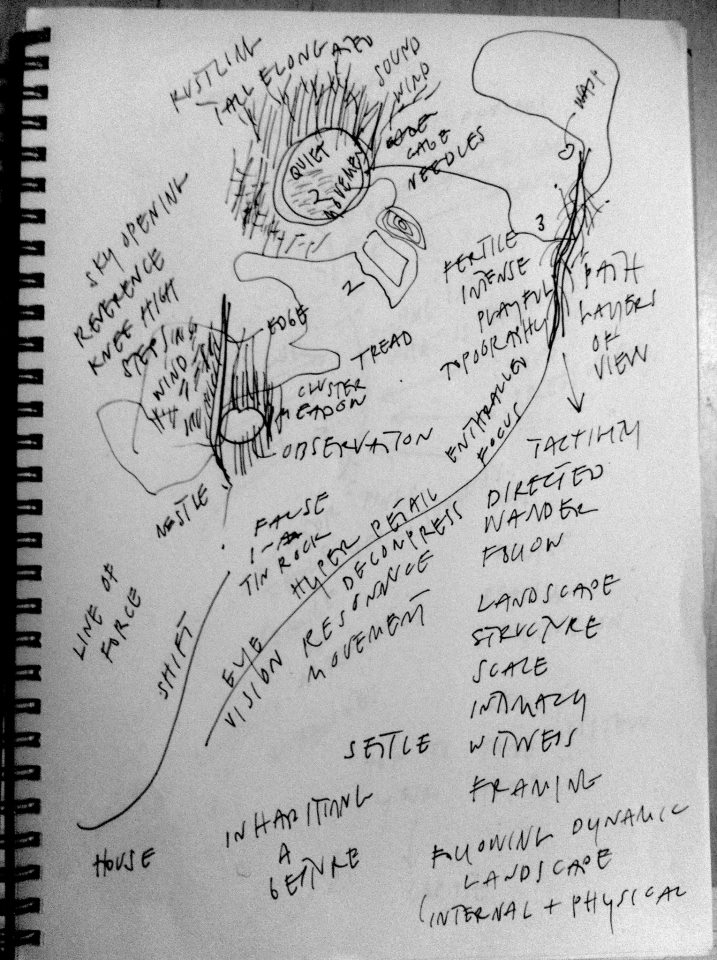 RUSTLING
TALL ELONGATED
SOUND
WIND
CAGE
NEEDLES
QUIET
MOVEMENT
2
WASH
3
SKY OPENING
REVERENCE
KNEE HIGH
STEPPING
WIND
EDGE
TREAD
CLUSTER
MEADOW
OBSERVATION
NESTLE
2
FERTILE
INTENSE
PLAYFUL
TOPOGRAPHY
PATH
LAYERS
OF
VIEW
ENTHRALLED
FOCUS
TACTILITY
DIRECTED
WANDER
FOLLOW
PAUSE
TIN ROCK
HYPER DETAIL
DECOMPRESS
EYE
VISION RESONNCE
MOVEMENT
LINE OF
FORCE
SHIFT
HOUSE
LANDSCAPE
STRUCTURE
SCALE
INTIMACY
SETTLE WITNESS
FRAMING
INHABITING
A
GESTURE
FOLLOWING DYNAMIC
LANDSCAPE
(INTERNAL + PHYSICAL